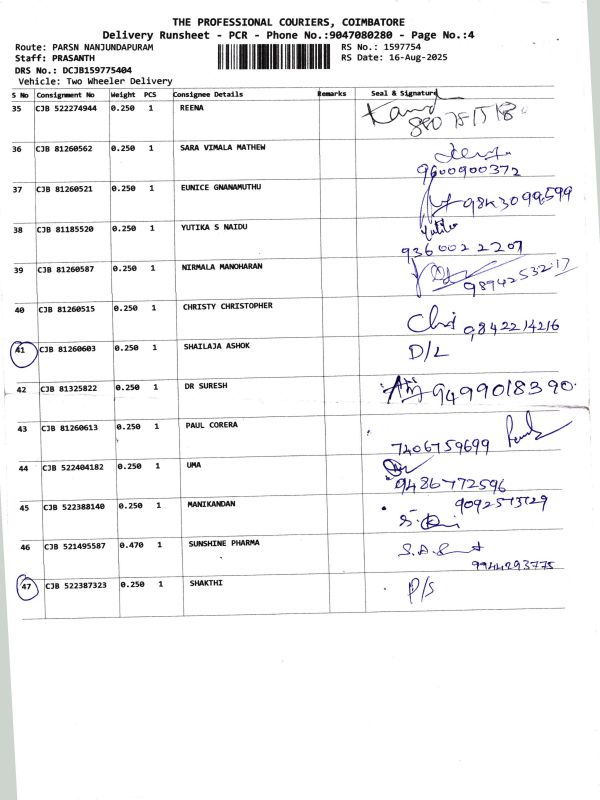 THE PROFESSIONAL COURIERS, COIMBATORE
Delivery Runsheet - PCR - Phone No.:9047080280 - Page No.:4
Route: PARSN NANJUNDAPURAM
RS No.: 1597754
Staff: PRASANTH
RS Date: 16-Aug-2025
DRS No.: DCJB159775404
Vehicle: Two Wheeler Delivery
S No Consignment No Weight PCS Consignee Details Remarks Seal & Signature
35 CJB 522274944 0.250 1 REENA
36 CJB 81260562 0.250 1 SARA VIMALA MATHEW
9600900372
37 CJB 81260521 0.250 1 EUNICE GNANAMUTHU
38 CJB 81185520 0.250 1 YUTIKA S NAIDU
9360022207
39 CJB 81260587 0.250 1 NIRMALA MANOHARAN
9894253217
40 CJB 81260515 0.250 1 CHRISTY CHRISTOPHER
9842214216
41 CJB 81260603 0.250 1 SHAILAJA ASHOK D/L
42 CJB 81325822 0.250 1 DR SURESH 9499018390
43 CJB 81260613 0.250 1 PAUL CORERA
7406759699
44 CJB 522404182 0.250 1 UMA
9486772596
45 CJB 522388140 0.250 1 MANIKANDAN
46 CJB 521495587 0.470 1 SUNSHINE PHARMA
9944293775
47 CJB 522387323 0.250 1 SHAKTHI P/S